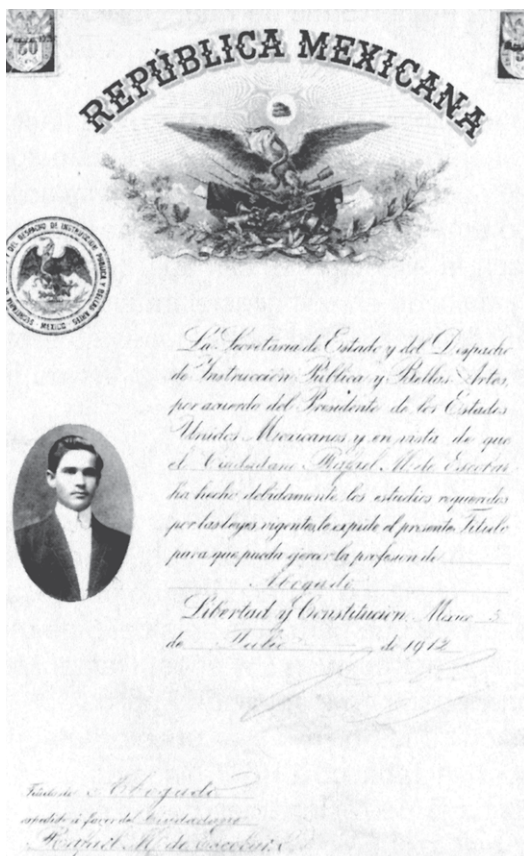 50
REPÚBLICA MEXICANA
DEL DESPACHO DE INSTRUCCION PUBLICA Y BELLAS ARTES
MEXICO
La Secretaría de Estado y del Despacho
de Instrucción Pública y Bellas Artes,
por acuerdo del Presidente de los Estados
Unidos Mexicanos y en vista de que
el Ciudadano Rafael M. de Escobar
ha hecho debidamente los estudios requeridos
por las leyes vigentes, le expide el presente Título
para que pueda ejercer la profesión de
Abogado
Libertad y Constitución. México 5
de Julio de 1912
Título de Abogado
expedido á favor del Ciudadano
Rafael M. de Escobar